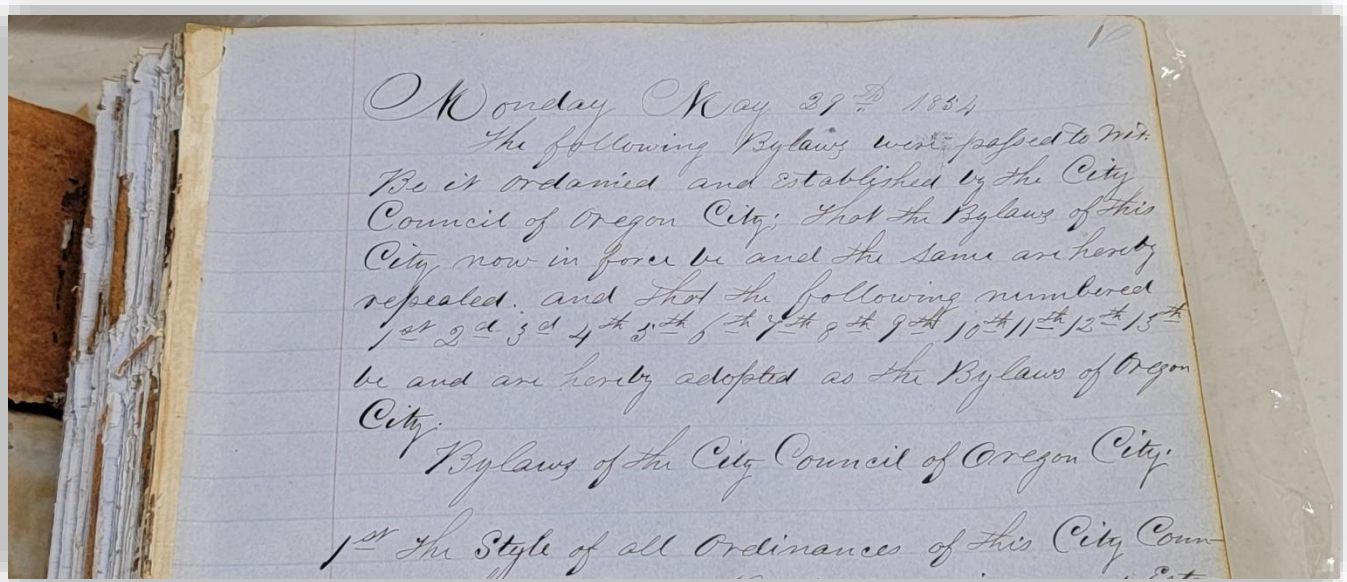 1
Monday May 29th 1854
The following Bylaws were passed to Wit.
Be it ordained and Established by the City
Council of Oregon City; That the Bylaws of this
City now in force be and the same are hereby
repealed. and that the following numbered
1st 2d 3d 4th 5th 6th 7th 8th 9th 10th 11th 12th 13th
be and are hereby adopted as the Bylaws of Oregon
City.
Bylaws of the City Council of Oregon City.
1st The Style of all Ordinances of this City Coun-